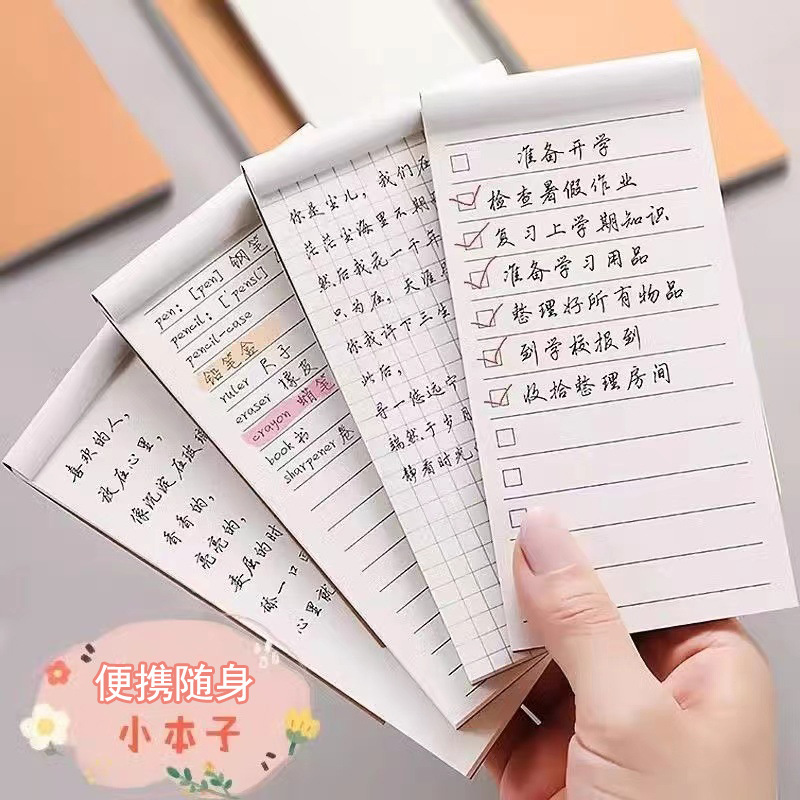 准备开学
检查暑假作业
复习上学期知识
准备学习用品
整理好所有物品
到学校报到
收拾整理房间
你是尘儿，我们在
茫茫尘海里不期
然后我花一千年
只为在，天涯
你我许下三生
此后，
寻一悠远宁
踏然于岁月
静看时光
pen：[pen] 钢笔
pencil：[pensl]
pencil-case
铅笔盒
ruler 尺子
eraser 橡皮
crayon 蜡笔
book 书
sharpener 卷
喜欢的人，
放在心里，
像沉淀在玻璃
香香的，
亮亮的，
委屈的时
舔一口
心里就
便携随身
小本子